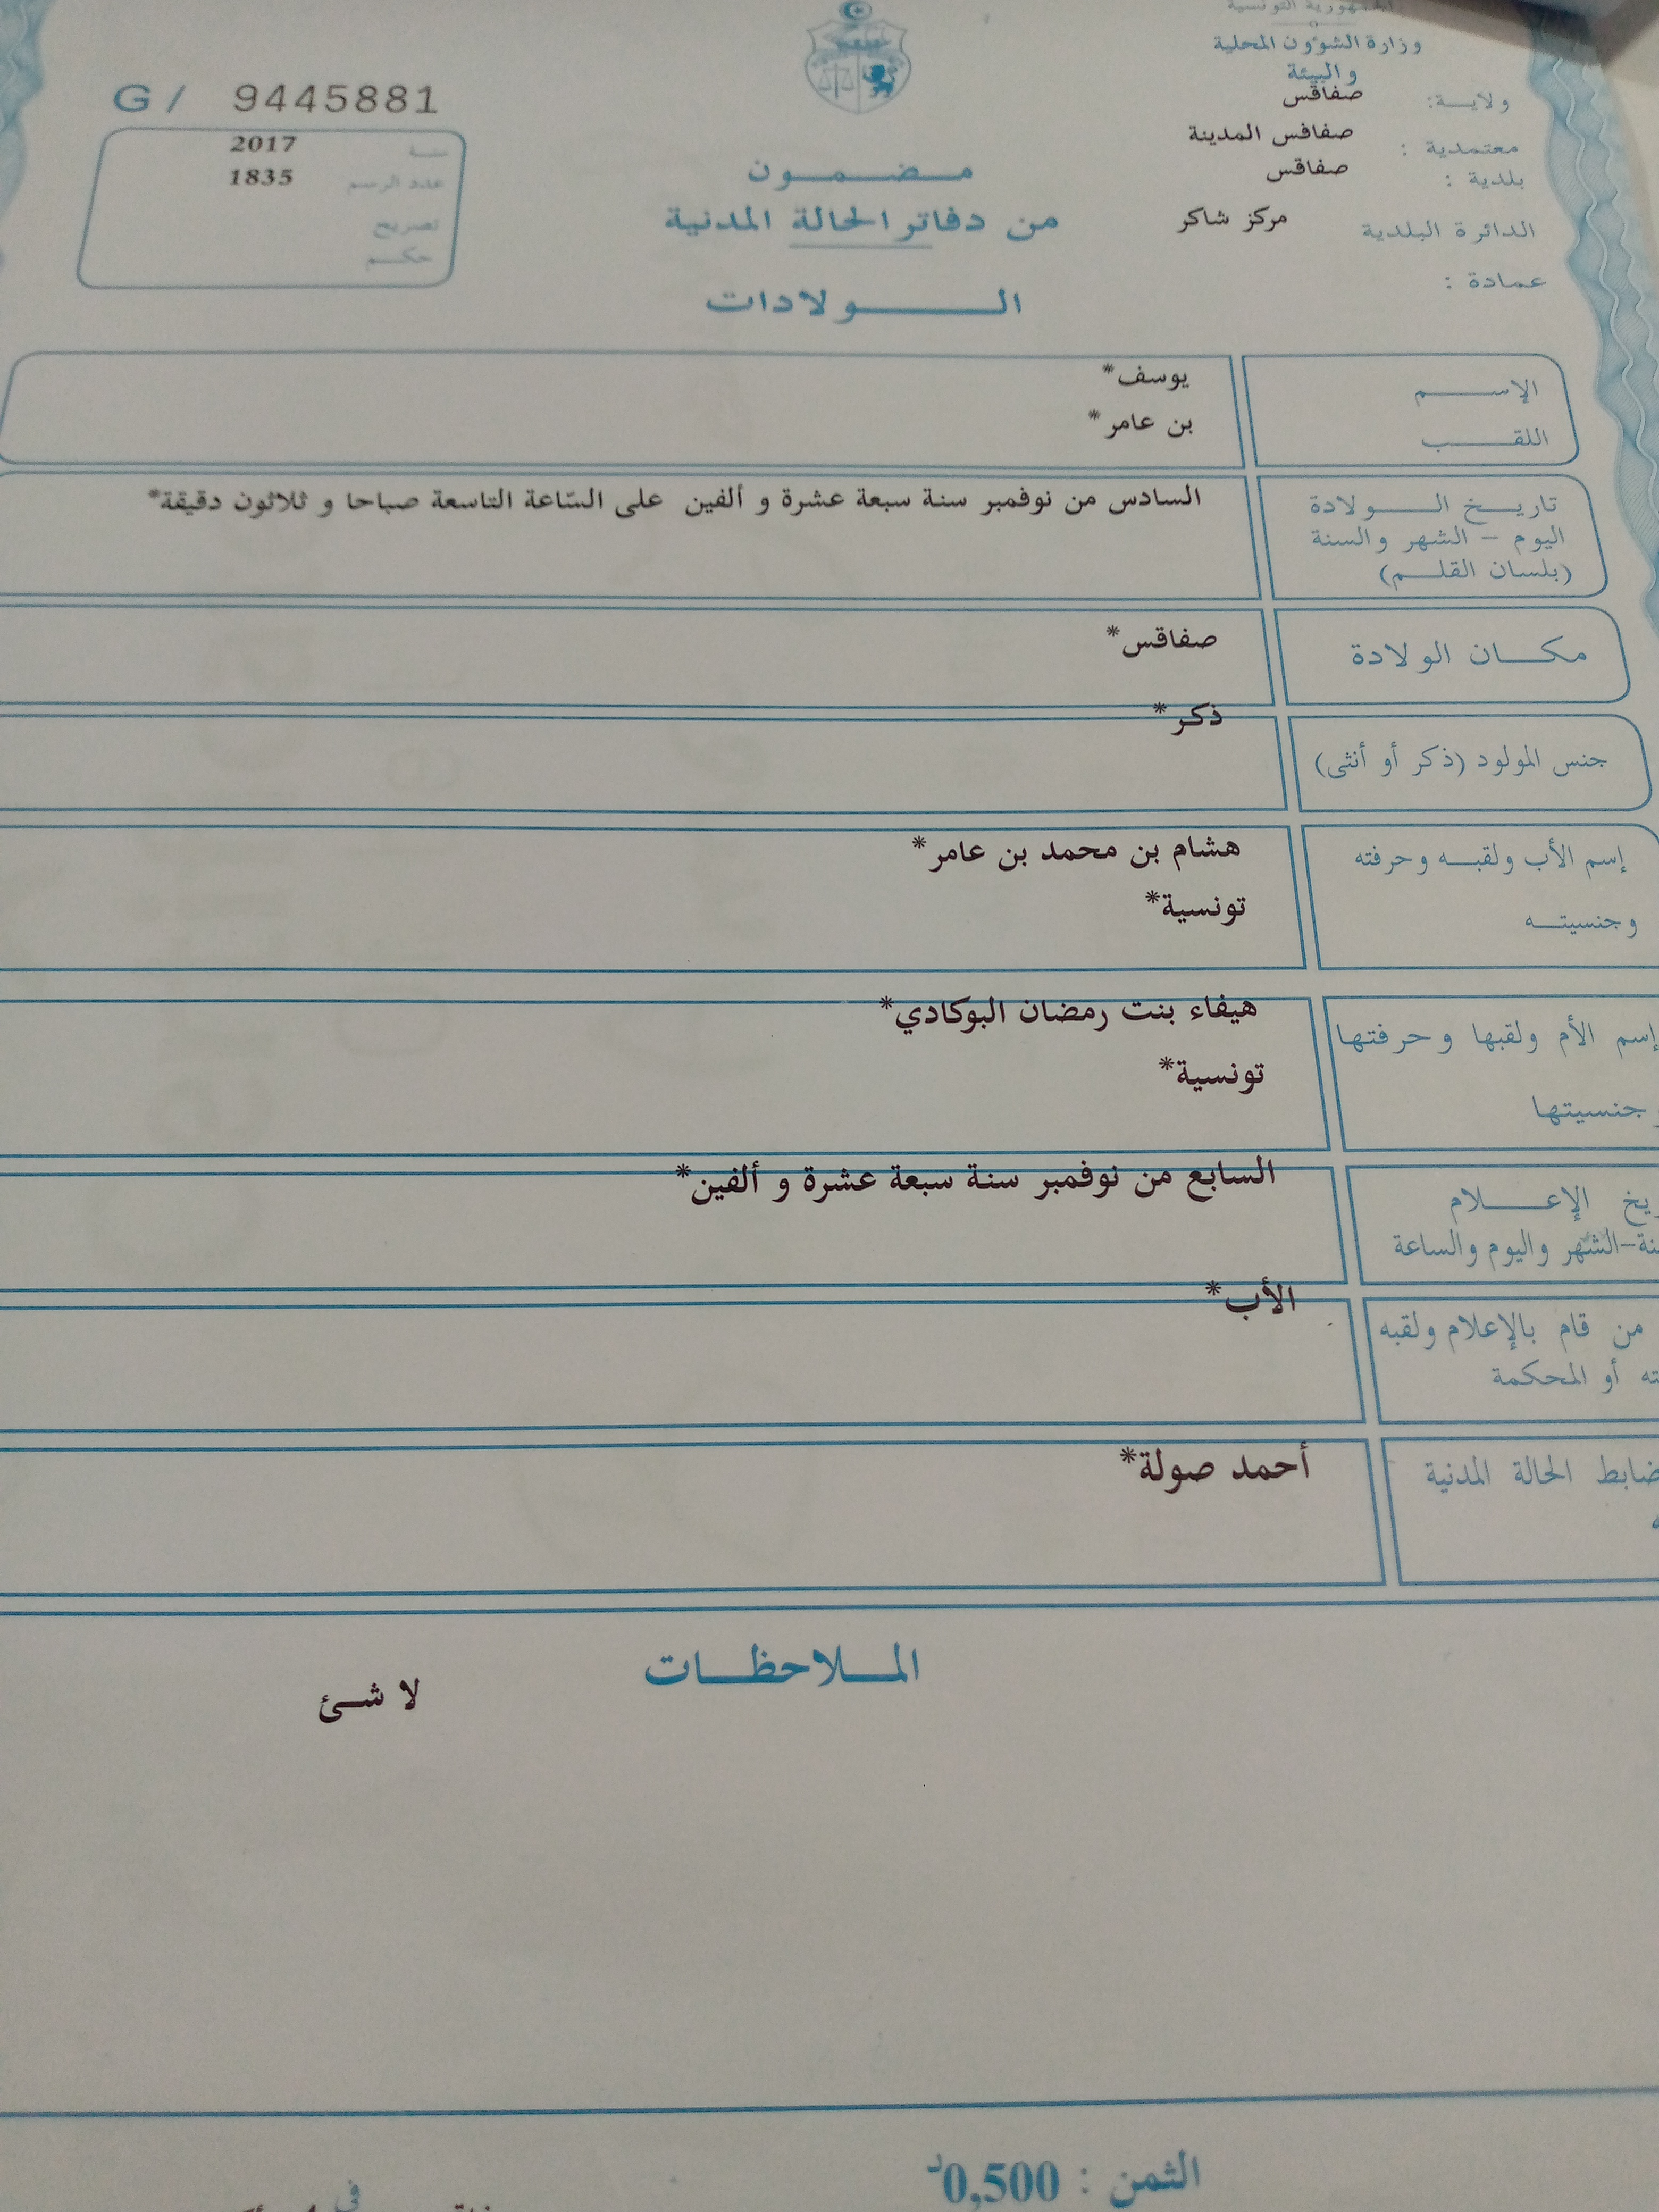 الجمهورية التونسية
وزارة الشؤون المحلية
والبيئة
ولاية: صفاقس
معتمدية : صفاقس المدينة
بلدية : صفاقس
الدائرة البلدية مركز شاكر
عمادة :
G/ 9445881
سنة 2017
عدد الرسم 1835
تصريح
حكم
مضمون
من دفاتر الحالة المدنية
الولادات
الإسم يوسف*
اللقب بن عامر*
تاريخ الولادة السادس من نوفمبر سنة سبعة عشرة و ألفين على السّاعة التاسعة صباحا و ثلاثون دقيقة*
اليوم - الشهر والسنة
(بلسان القلم)
مكان الولادة صفاقس*
جنس المولود (ذكر أو أنثى) ذكر*
إسم الأب ولقبه وحرفته هشام بن محمد بن عامر*
وجنسيته تونسية*
إسم الأم ولقبها وحرفتها هيفاء بنت رمضان البوكادي*
جنسيتها تونسية*
الإعلام السابع من نوفمبر سنة سبعة عشرة و ألفين*
الشهر واليوم والساعة
من قام بالإعلام ولقبه الأب*
أو المحكمة
ضابط الحالة المدنية أحمد صولة*
الملاحظات
لا شئ
الثمن : 0,500د
في